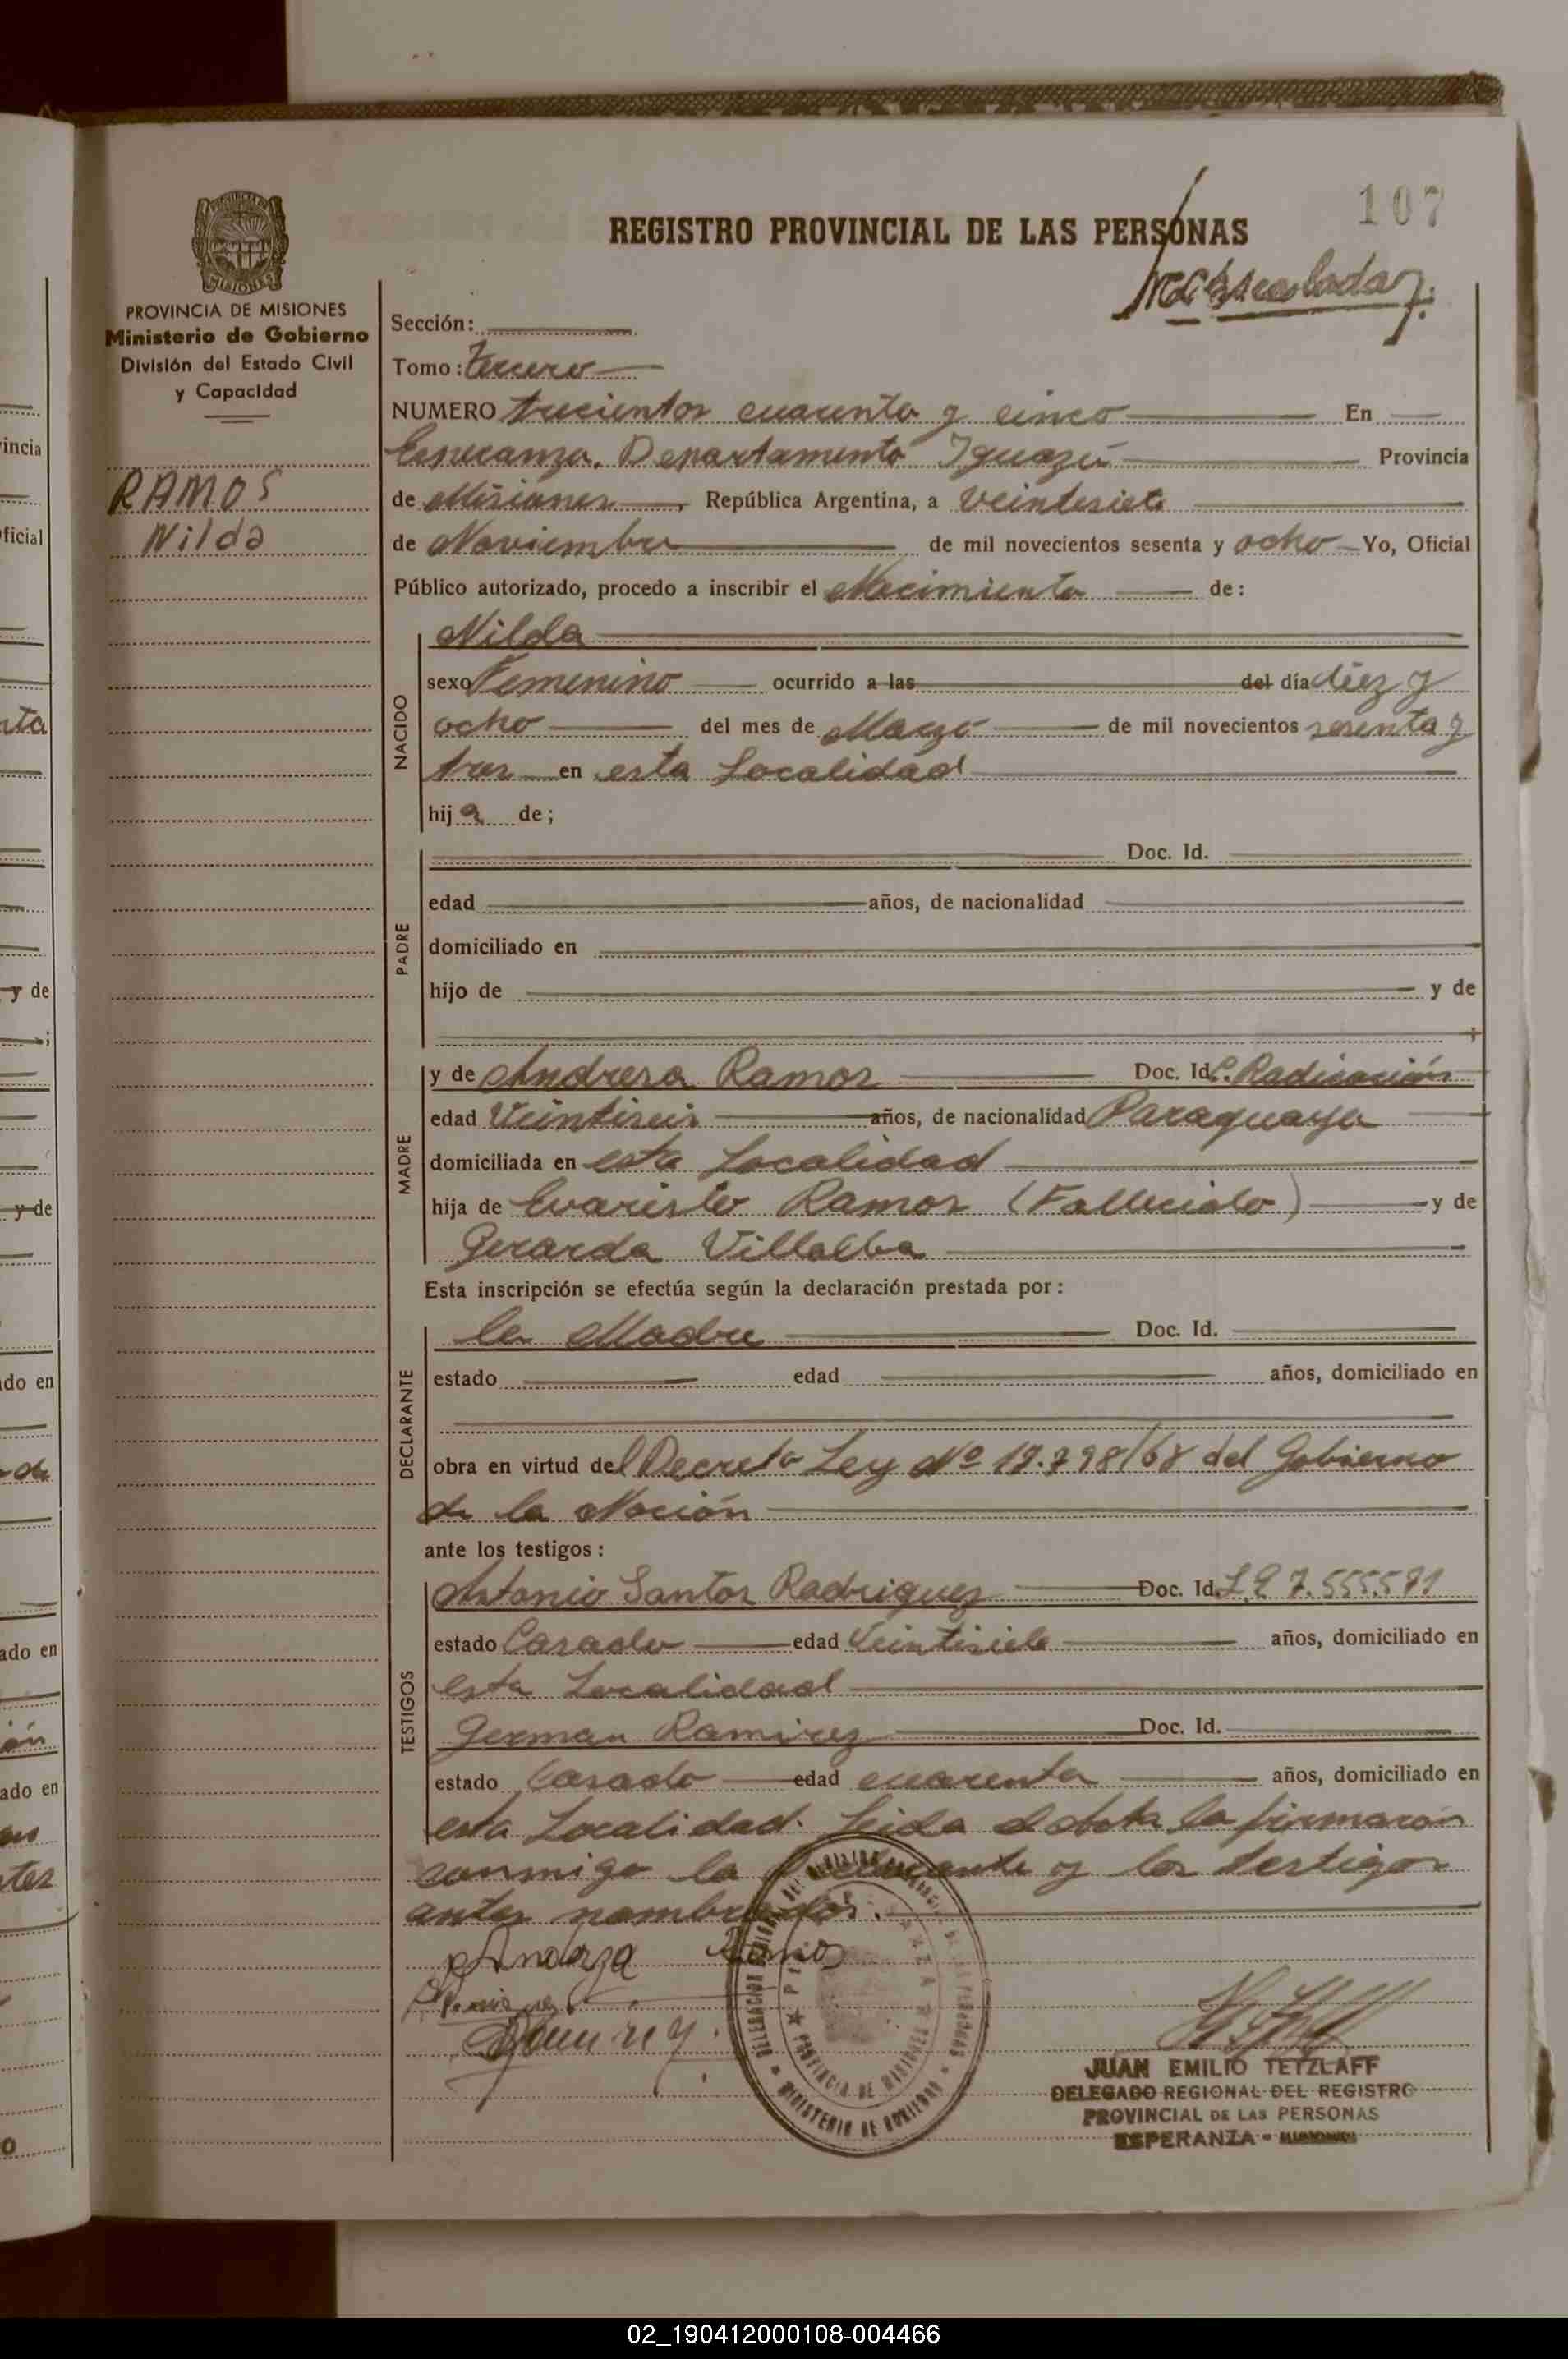 107
REGISTRO PROVINCIAL DE LAS PERSONAS
PROVINCIA DE MISIONES
Ministerio de Gobierno
División del Estado Civil
y Capacidad
RAMOS
Nilda
Sección:
Tomo: tercero
NUMERO trescientos cuarenta y cinco En
Esperanza. Departamento Iguazú Provincia
de Misiones, República Argentina, a veintesiete
de Noviembre de mil novecientos sesenta y ocho Yo, Oficial
Público autorizado, procedo a inscribir el Nacimiento de:
NACIDO
Nilda
sexo Femenino ocurrido a las del día diez y
ocho del mes de Marzo de mil novecientos sesenta y
tres en esta Localidad
hija de;
PADRE
Doc. Id.
edad años, de nacionalidad
domiciliado en
hijo de y de
MADRE
y de Andresa Ramos Doc. Id. C. Radicación
edad Veintiseis años, de nacionalidad Paraguaya
domiciliada en esta Localidad
hija de Evaristo Ramos (Fallecido) y de
Gerarda Villalba
Esta inscripción se efectúa según la declaración prestada por:
DECLARANTE
la Madre Doc. Id.
estado edad años, domiciliado en
obra en virtud del Decreto Ley Nº 17.798/68 del Gobierno
de la Nación
ante los testigos:
TESTIGOS
Antonio Santos Rodriguez Doc. Id. 7.555.571
estado Casado edad Veintisiete años, domiciliado en
esta Localidad
German Ramirez Doc. Id.
estado Casado edad cuarenta años, domiciliado en
esta Localidad. Leida el Acta la firmaron
conmigo la declarante y los testigos
antes nombrados.
Ramos
PROVINCIA DE MISIONES
MINISTERIO DE GOBIERNO
JUAN EMILIO TETZLAFF
DELEGADO REGIONAL DEL REGISTRO
PROVINCIAL DE LAS PERSONAS
ESPERANZA - MISIONES
02_190412000108-004466